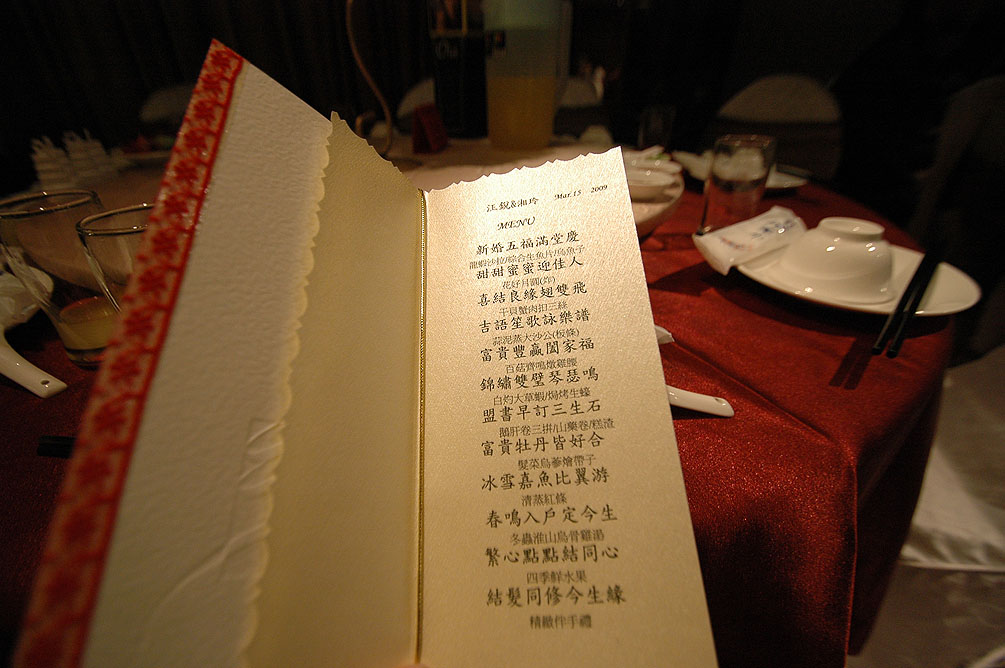 汪銳&湘玲 Mar.15 2009
MENU
新婚五福滿堂慶
龍蝦沙拉/綜合生魚片/烏魚子
甜甜蜜蜜迎佳人
花好月圓(炸)
喜結良緣翅雙飛
干貝蟹肉扣三絲
吉語笙歌詠樂譜
蒜泥蒸大沙公(板條)
富貴豐贏闔家福
百菇齊鳴燉雞腰
錦繡雙璧琴瑟鳴
白灼大草蝦/焗烤生蠔
盟書早訂三生石
鵝肝卷三拼/山藥卷/糕渣
富貴牡丹皆好合
髮菜烏蔘燴帶子
冰雪嘉魚比翼游
清蒸紅條
春鳴入戶定今生
冬蟲淮山烏骨雞湯
繫心點點結同心
四季鮮水果
結髮同修今生緣
精緻伴手禮